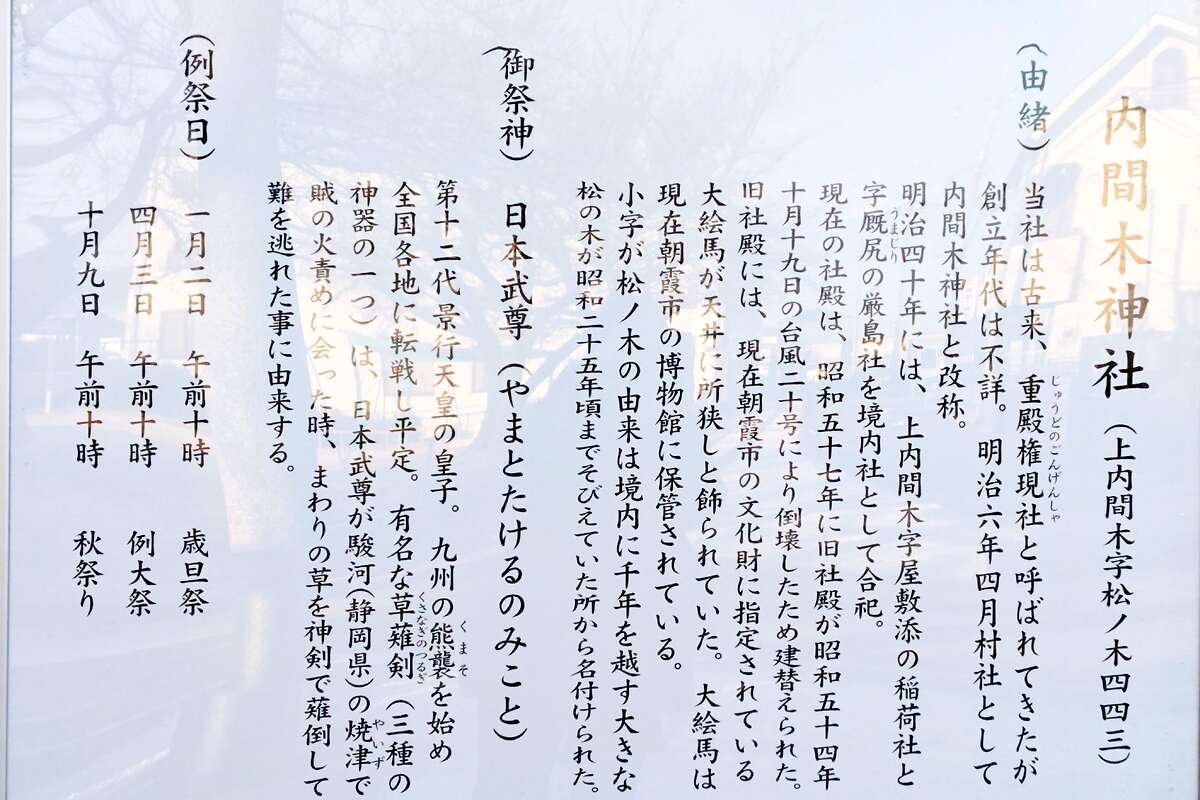 内間木神社（上内間木字松ノ木四四三）
（由緒）
当社は古来、重殿権現社と呼ばれてきたが
じゅうどのごんげんしゃ
創立年代は不詳。明治六年四月村社として
内間木神社と改称。
明治四十年には、上内間木字屋敷添の稲荷社と
字厩尻の厳島社を境内社として合祀。
うまじり
現在の社殿は、昭和五十七年に旧社殿が昭和五十四年
十月十九日の台風二十号により倒壊したため建替えられた。
旧社殿には、現在朝霞市の文化財に指定されている
大絵馬が天井に所狭しと飾られていた。大絵馬は
現在朝霞市の博物館に保管されている。
小字が松ノ木の由来は境内に千年を越す大きな
松の木が昭和二十五年頃までそびえていた所から名付けられた。
（御祭神）日本武尊（やまとたけるのみこと）
第十二代景行天皇の皇子。九州の熊襲を始め
くまそ
全国各地に転戦し平定。有名な草薙剣（三種の
くさなぎのつるぎ
神器の一つ）は、日本武尊が駿河（静岡県）の焼津で
やいず
賊の火責めに会った時、まわりの草を神剣で薙倒して
難を逃れた事に由来する。
（例祭日）
一月二日　午前十時　歳旦祭
四月三日　午前十時　例大祭
十月九日　午前十時　秋祭り